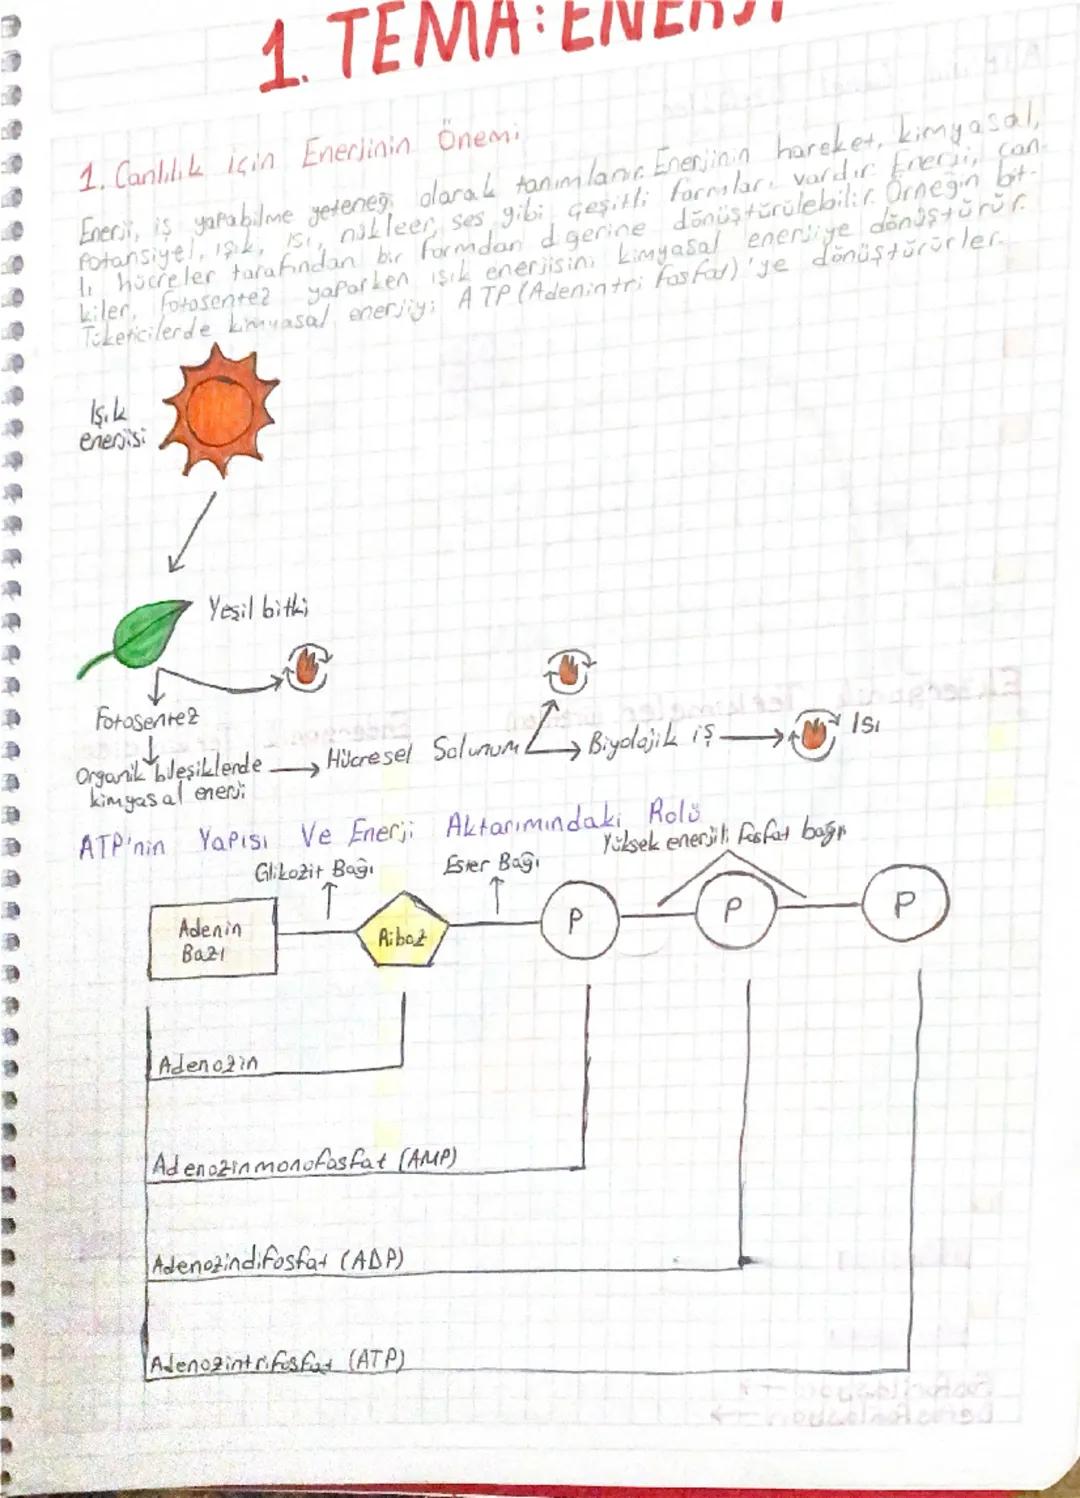 1. TEMA: ENERJİ
1. Canlılık için Enerjinin Önemi
Enerji, iş yapabilme yeteneği olarak tanımlanır. Enerjinin hareket, kimyasal,
Potansiyel, ışık, ısı, nükleer, ses gibi çeşitli formları vardır. Enerji, can-
lı hücreler tarafından bir formdan diğerine dönüştürülebilir. Örneğin bit-
kiler, Fotosentez yaparken ışık enerjisini kimyasal enerjiye dönüştürür.
Tüketicilerde kimyasal enerjiyi ATP (Adenintri fosfat)'ye dönüştürürler.
Işık
enerjisi
Yeşil bitki
Fotosentez
Organik bileşiklerde
kimyasal enerji
Hücresel Solunum
Biyolojik iş
Isı
ATP'nin Yapısı Ve Enerji Aktarımındaki Rolü
Yüksek enerjili fosfat bağı
Glikozit Bağı
Ester Bağı
Adenin
Bazı
Riboz
P
P
P
Adenozin
Adenozinmonofosfat (AMP)
Adenozindifosfat (ADP)
Adenozintrifosfat (ATP)